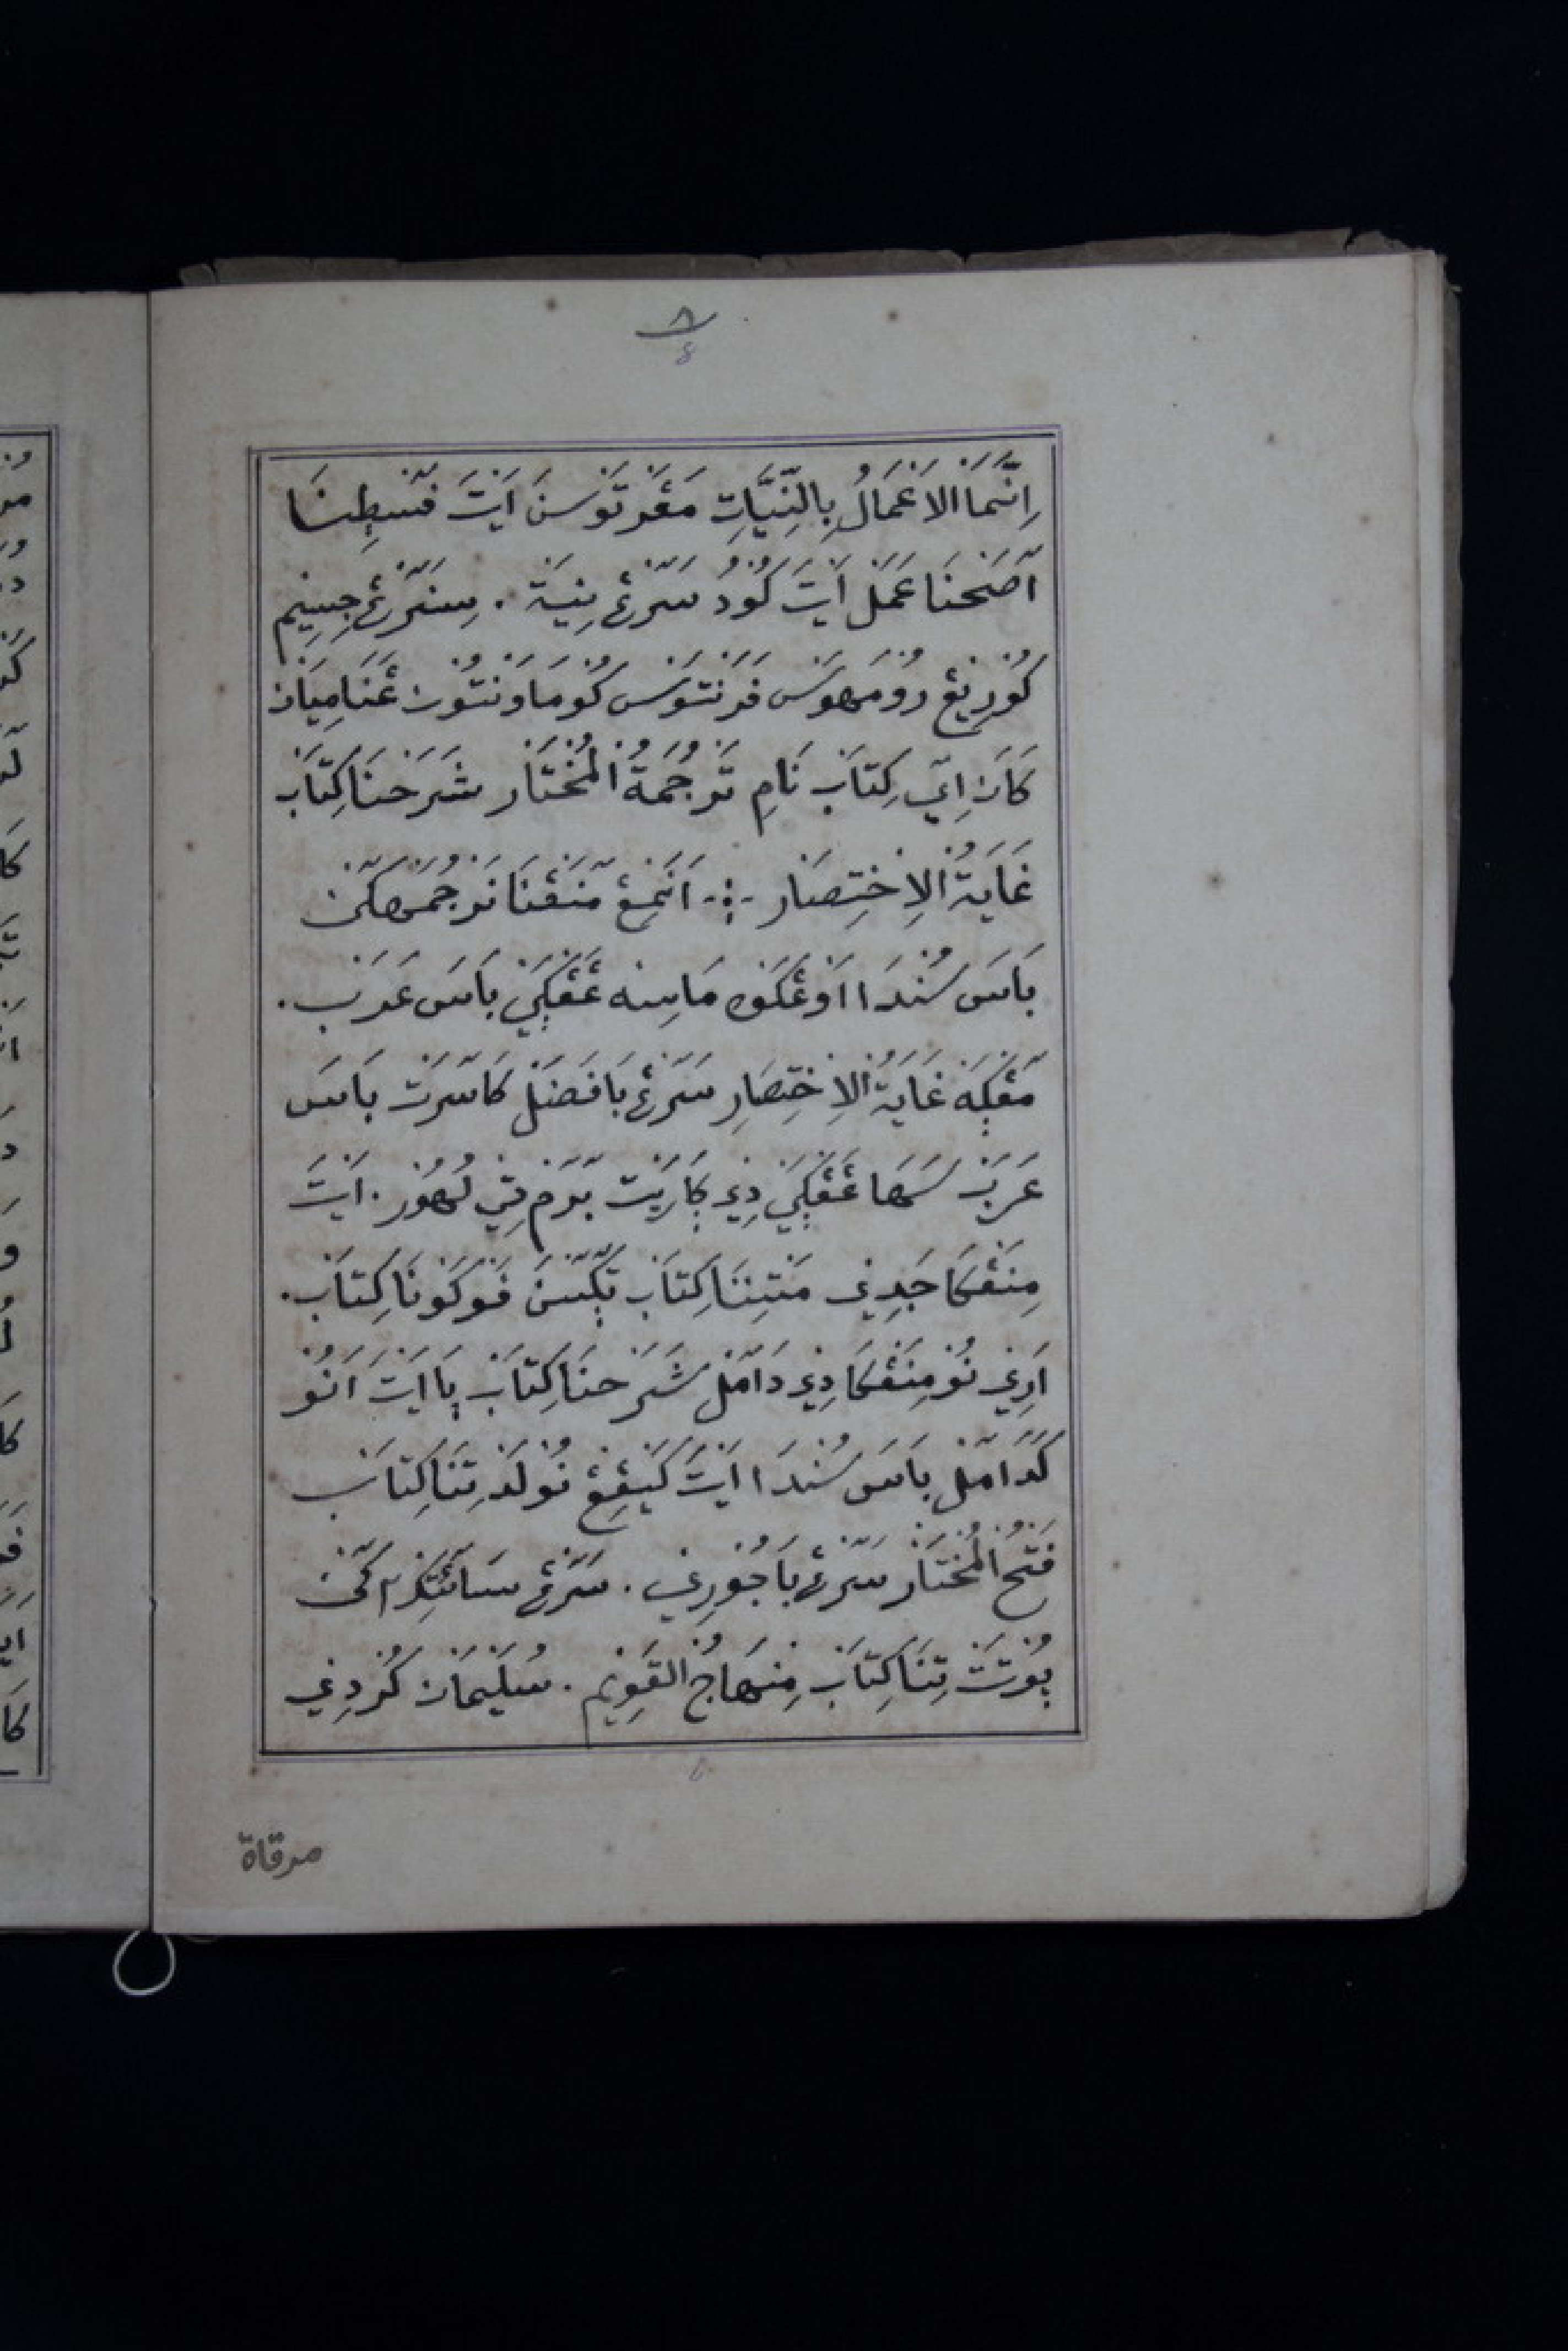 ٨
٤
اِنَّمَا الاَعْمَالُ بِالنِّيَّاتِ مَڠَرْتَوْسَنَ اَيْتَ فَسْطِنَا
اَصَحْنَا عَمَلْ اَيْتَ كُوْدُ سَرَڠْ نِيَةْ . سِنَرَڠْ جِسِيْم
كُوْرِيْڠْ رُوْمَهَوْسْ فَرَنْتَوْسْ كُوْمَاوَنْتُوْنْ عَنَامِيَانْ
كَانَ اِيَ كِتَابْ نَامِ تَرْجُمَةُ الْمُخْتَارْ شَرَحْنَا كِتَابْ
غَايَةُ الاِخْتِصَارْ -:- اَنَمِڠْ مَنَڤْنَا نَرْجُمَهَكَنْ
بَاسَ سُنْدَا اَوْڠْكَوْه مَاسِه عَڠْڮَيْ بَاسَ عَرَبْ .
مَڠْڮَه غَايَةُ الاِخْتِصَارِ سَرَڠْ بَافَضَلْ كَاسَرَتْ بَاسَ
عَرَبْ سَهَا عَڠْڮَيْ دِيْ ڮَارِيْتْ بَرَمْ تِيْ لُهُوْرْ . اَيْتَ
مِنَڠْكَا جَدِيْ مَتِنَنَا كِتَابْ تَڮَسْنَ فَوْكَوْنَا كِتَابْ .
اَرِيْ نُوْ مِنَڠْكَا دِيْ دَامَلْ شَرَحْنَا كِتَابْ ڽَا اَيْتَ اَنُوْ
كَدَامَلْ بَاسَ سُنْدَا اَيْتَ كَيْڤِڠْ نُوْلَدْ تِنَا كِتَابْ
فَتْحُ الْمُخْتَارْ سَرَڠْ بَاجُوْرِيْ . سَرَڠْ سَاتَڠْتَرَمْ كَنْ
ڽُوْتَتْ تِنَا كِتَابْ مِنْهَاجُ القَوِيْم . سُلَيْمَانْ كُرْدِيْ
مرقاة